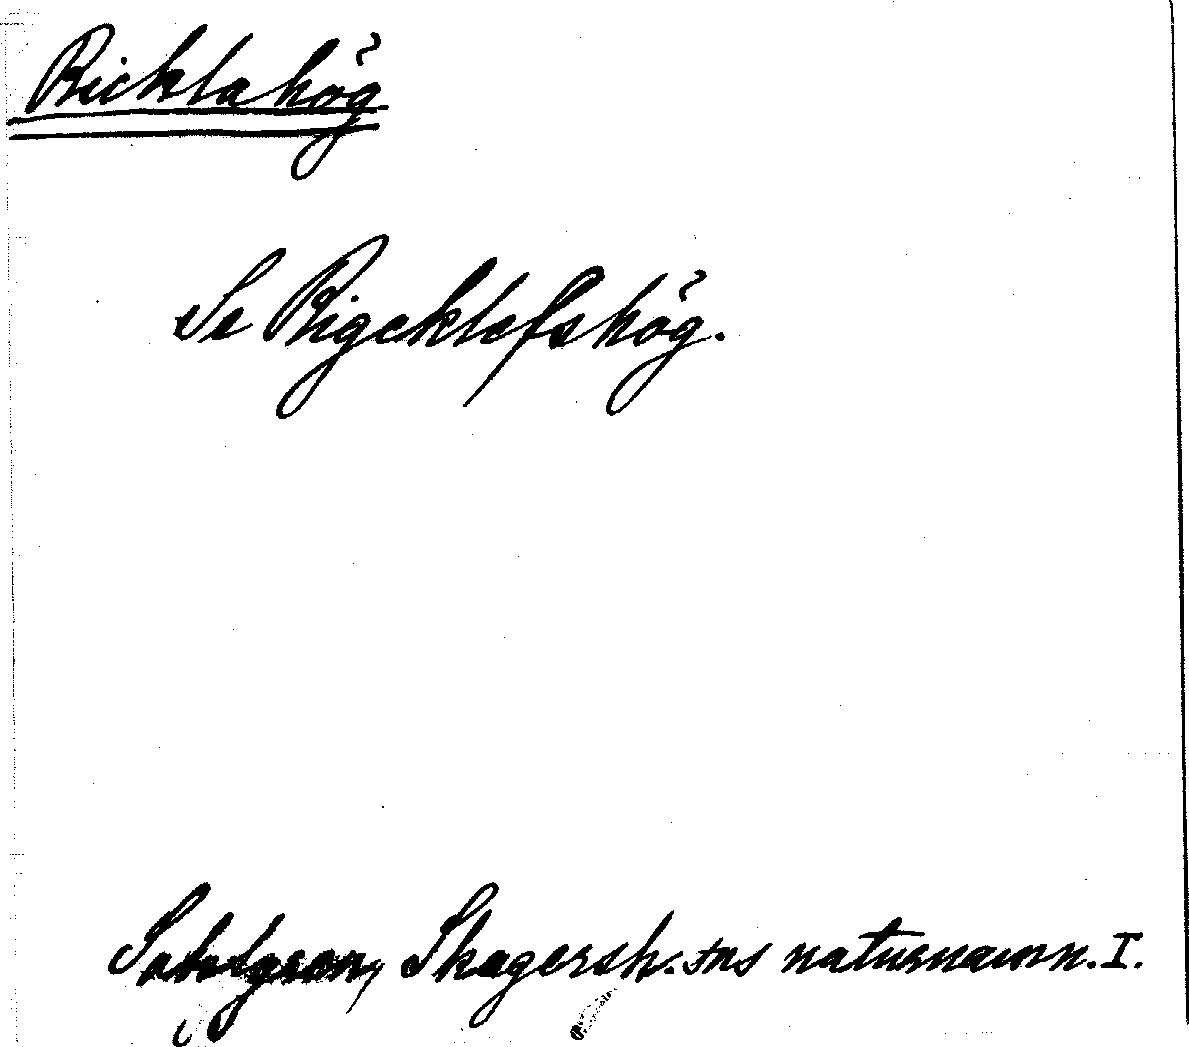 Ricklahög
Se Rigeklefshög.
Sahlgren, Skagersh.sns naturnamn. I.